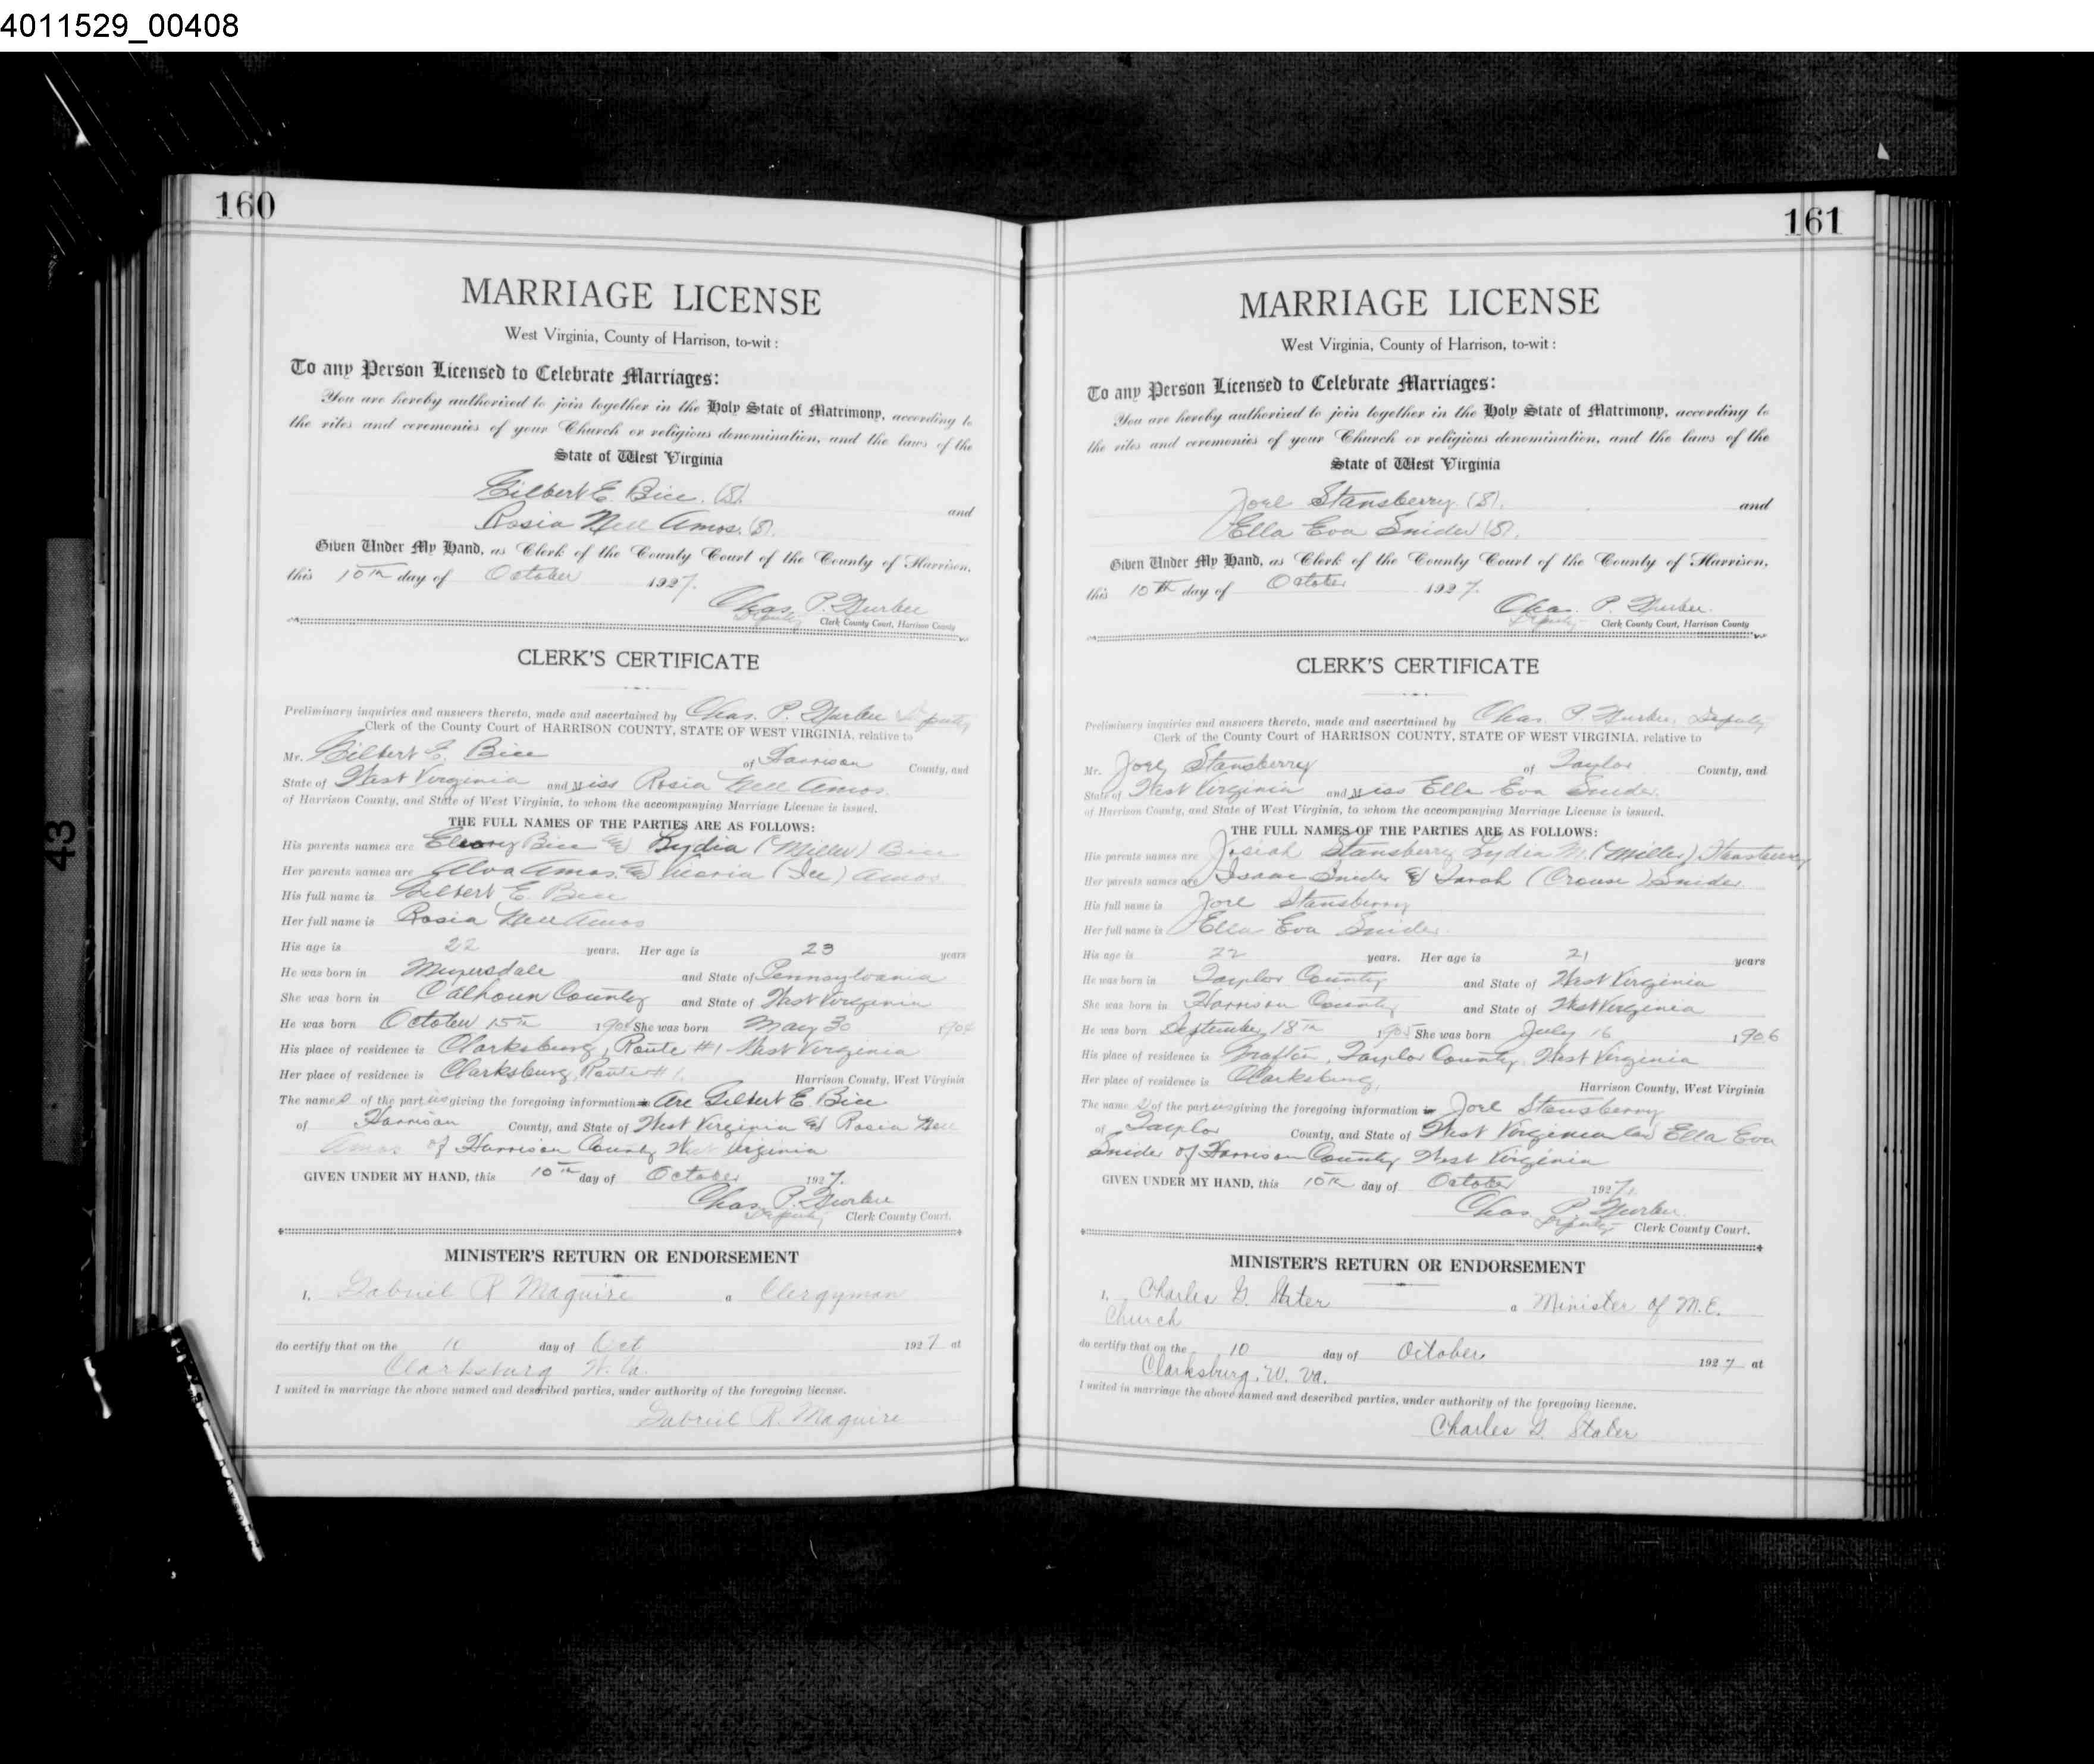 4011529_00408
160
MARRIAGE LICENSE
West Virginia, County of Harrison, to-wit:
To any Person Licensed to Celebrate Marriages:
You are hereby authorized to join together in the Holy State of Matrimony, according to
the rites and ceremonies of your Church or religious denomination, and the laws of the
State of West Virginia
Gilbert E. Bice. (S).
and
Rosia Nell Amos. (S).
Given Under My Hand, as Clerk of the County Court of the County of Harrison,
this 10th day of October 1927.
Chas. P.
Deputy Clerk County Court, Harrison County
CLERK'S CERTIFICATE
Preliminary inquiries and answers thereto, made and ascertained by Chas. P. Deputy
Clerk of the County Court of HARRISON COUNTY, STATE OF WEST VIRGINIA, relative to
Mr. Gilbert E. Bice of Harrison County, and
State of West Virginia and Miss Rosia Nell Amos.
of Harrison County, and State of West Virginia, to whom the accompanying Marriage License is issued.
THE FULL NAMES OF THE PARTIES ARE AS FOLLOWS:
His parents names are Bice & Lydia (Miller) Bice
Her parents names are Alva Amos & (Ice) Amos
His full name is Gilbert E. Bice
Her full name is Rosia Nell Amos
His age is 22 years. Her age is 23 years
He was born in and State of Pennsylvania
She was born in Calhoun County and State of West Virginia
He was born October 15th She was born May 30 1904
His place of residence is Clarksburg, Route #1 West Virginia
Her place of residence is Clarksburg, Route #1. Harrison County, West Virginia
The names of the parties giving the foregoing information are Gilbert E. Bice
of Harrison County, and State of West Virginia & Rosia Nell
Amos of Harrison County West Virginia
GIVEN UNDER MY HAND, this 10th day of October 1927.
Chas. P.
Deputy Clerk County Court.
MINISTER'S RETURN OR ENDORSEMENT
I, Gabriel R Maguire a Clergyman
do certify that on the 10 day of Oct 1927 at
Clarksburg W. Va.
I united in marriage the above named and described parties, under authority of the foregoing license.
Gabriel R. Maguire
161
MARRIAGE LICENSE
West Virginia, County of Harrison, to-wit:
To any Person Licensed to Celebrate Marriages:
You are hereby authorized to join together in the Holy State of Matrimony, according to
the rites and ceremonies of your Church or religious denomination, and the laws of the
State of West Virginia
Joel Stansberry (S).
and
Ella Eva Snider (S).
Given Under My Hand, as Clerk of the County Court of the County of Harrison,
this 10th day of October 1927.
Chas. P.
Deputy Clerk County Court, Harrison County
CLERK'S CERTIFICATE
Preliminary inquiries and answers thereto, made and ascertained by Chas. P. Deputy
Clerk of the County Court of HARRISON COUNTY, STATE OF WEST VIRGINIA, relative to
Mr. Joel Stansberry of Taylor County, and
State of West Virginia and Miss Ella Eva Snider.
of Harrison County, and State of West Virginia, to whom the accompanying Marriage License is issued.
THE FULL NAMES OF THE PARTIES ARE AS FOLLOWS:
His parents names are Josiah Stansberry Lydia M. (Miller) Stansberry
Her parents names are Isaac Snider & Sarah (Crouse) Snider.
His full name is Joel Stansberry
Her full name is Ella Eva Snider.
His age is 22 years. Her age is 21 years
He was born in Taylor County and State of West Virginia
She was born in Harrison County and State of West Virginia
He was born September 18th 1905 She was born July 16 1906
His place of residence is Grafton, Taylor County, West Virginia
Her place of residence is Clarksburg, Harrison County, West Virginia
The names of the parties giving the foregoing information is Joel Stansberry
of Taylor County, and State of West Virginia and Ella Eva
Snider of Harrison County West Virginia
GIVEN UNDER MY HAND, this 10th day of October 1927.
Chas. P.
Deputy Clerk County Court.
MINISTER'S RETURN OR ENDORSEMENT
I, Charles G. Stater a Minister of M.E.
Church
do certify that on the 10 day of October 1927 at
Clarksburg, W. Va.
I united in marriage the above named and described parties, under authority of the foregoing license.
Charles G. Stater
43